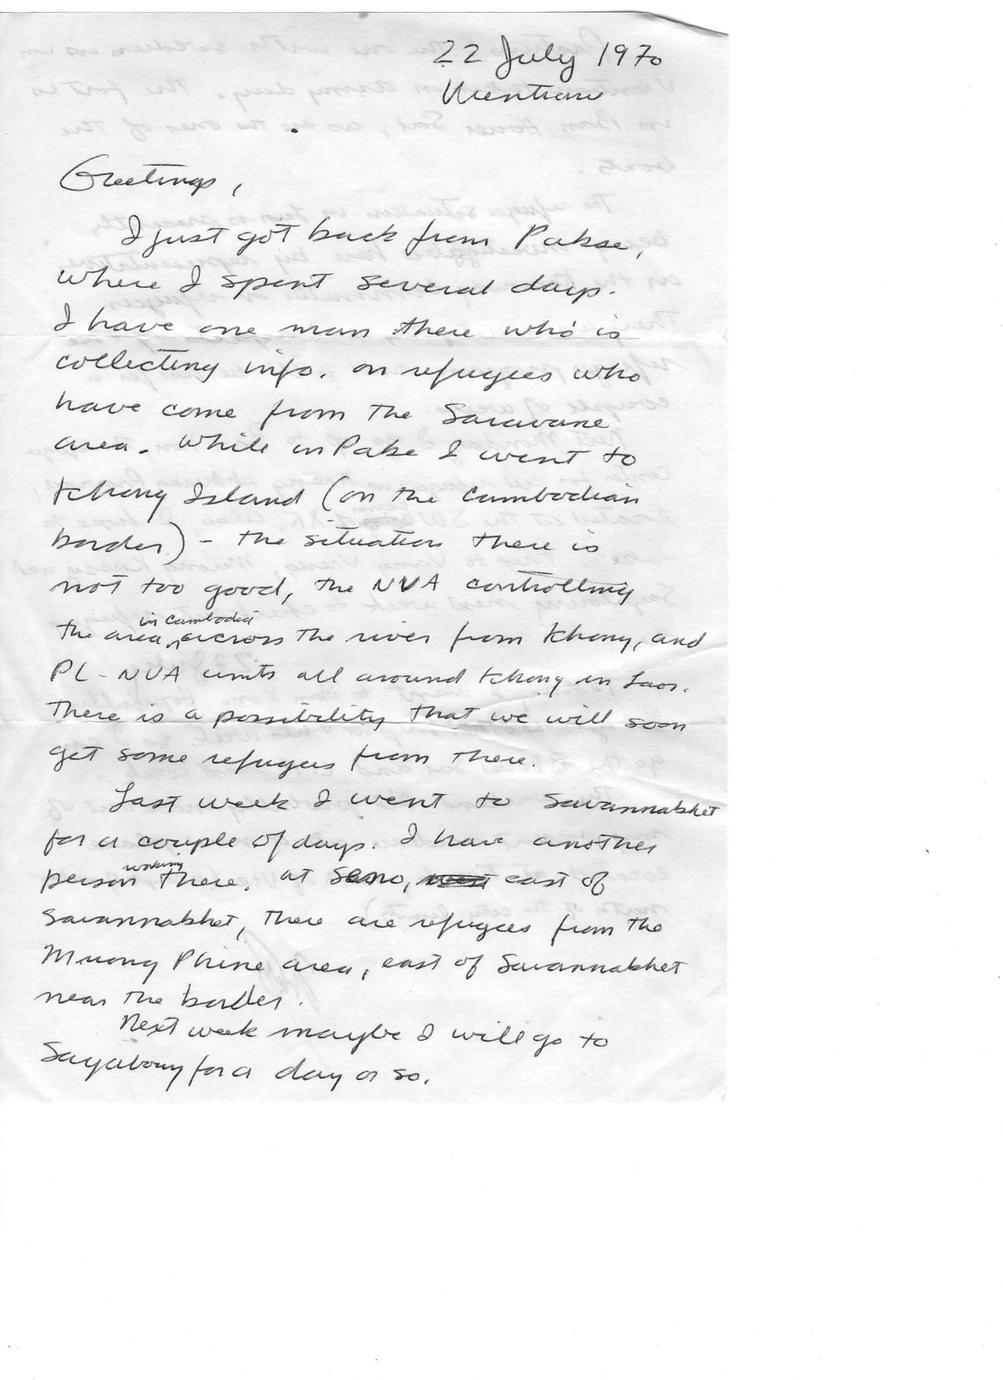 22 July 1970
Vientiane
Greetings,
I just got back from Pakse,
where I spent several days.
I have one man there who is
collecting info. on refugees who
have come from the Saravane
area. While in Pakse I went to
Khong Island (on the Cambodian
border) - the situation there is
not too good, the NVA controlling
the area in Cambodia across the river from Khong, and
PL-NVA units all around Khong in Laos.
There is a possibility that we will soon
get some refugees from there.
Last week I went to Savannakhet
for a couple of days. I have another
person working there. at Seno, west east of
Savannakhet, there are refugees from the
Muong Phine area, east of Savannakhet
near the border.
Next week maybe I will go to
Sayaboury for a day or so.